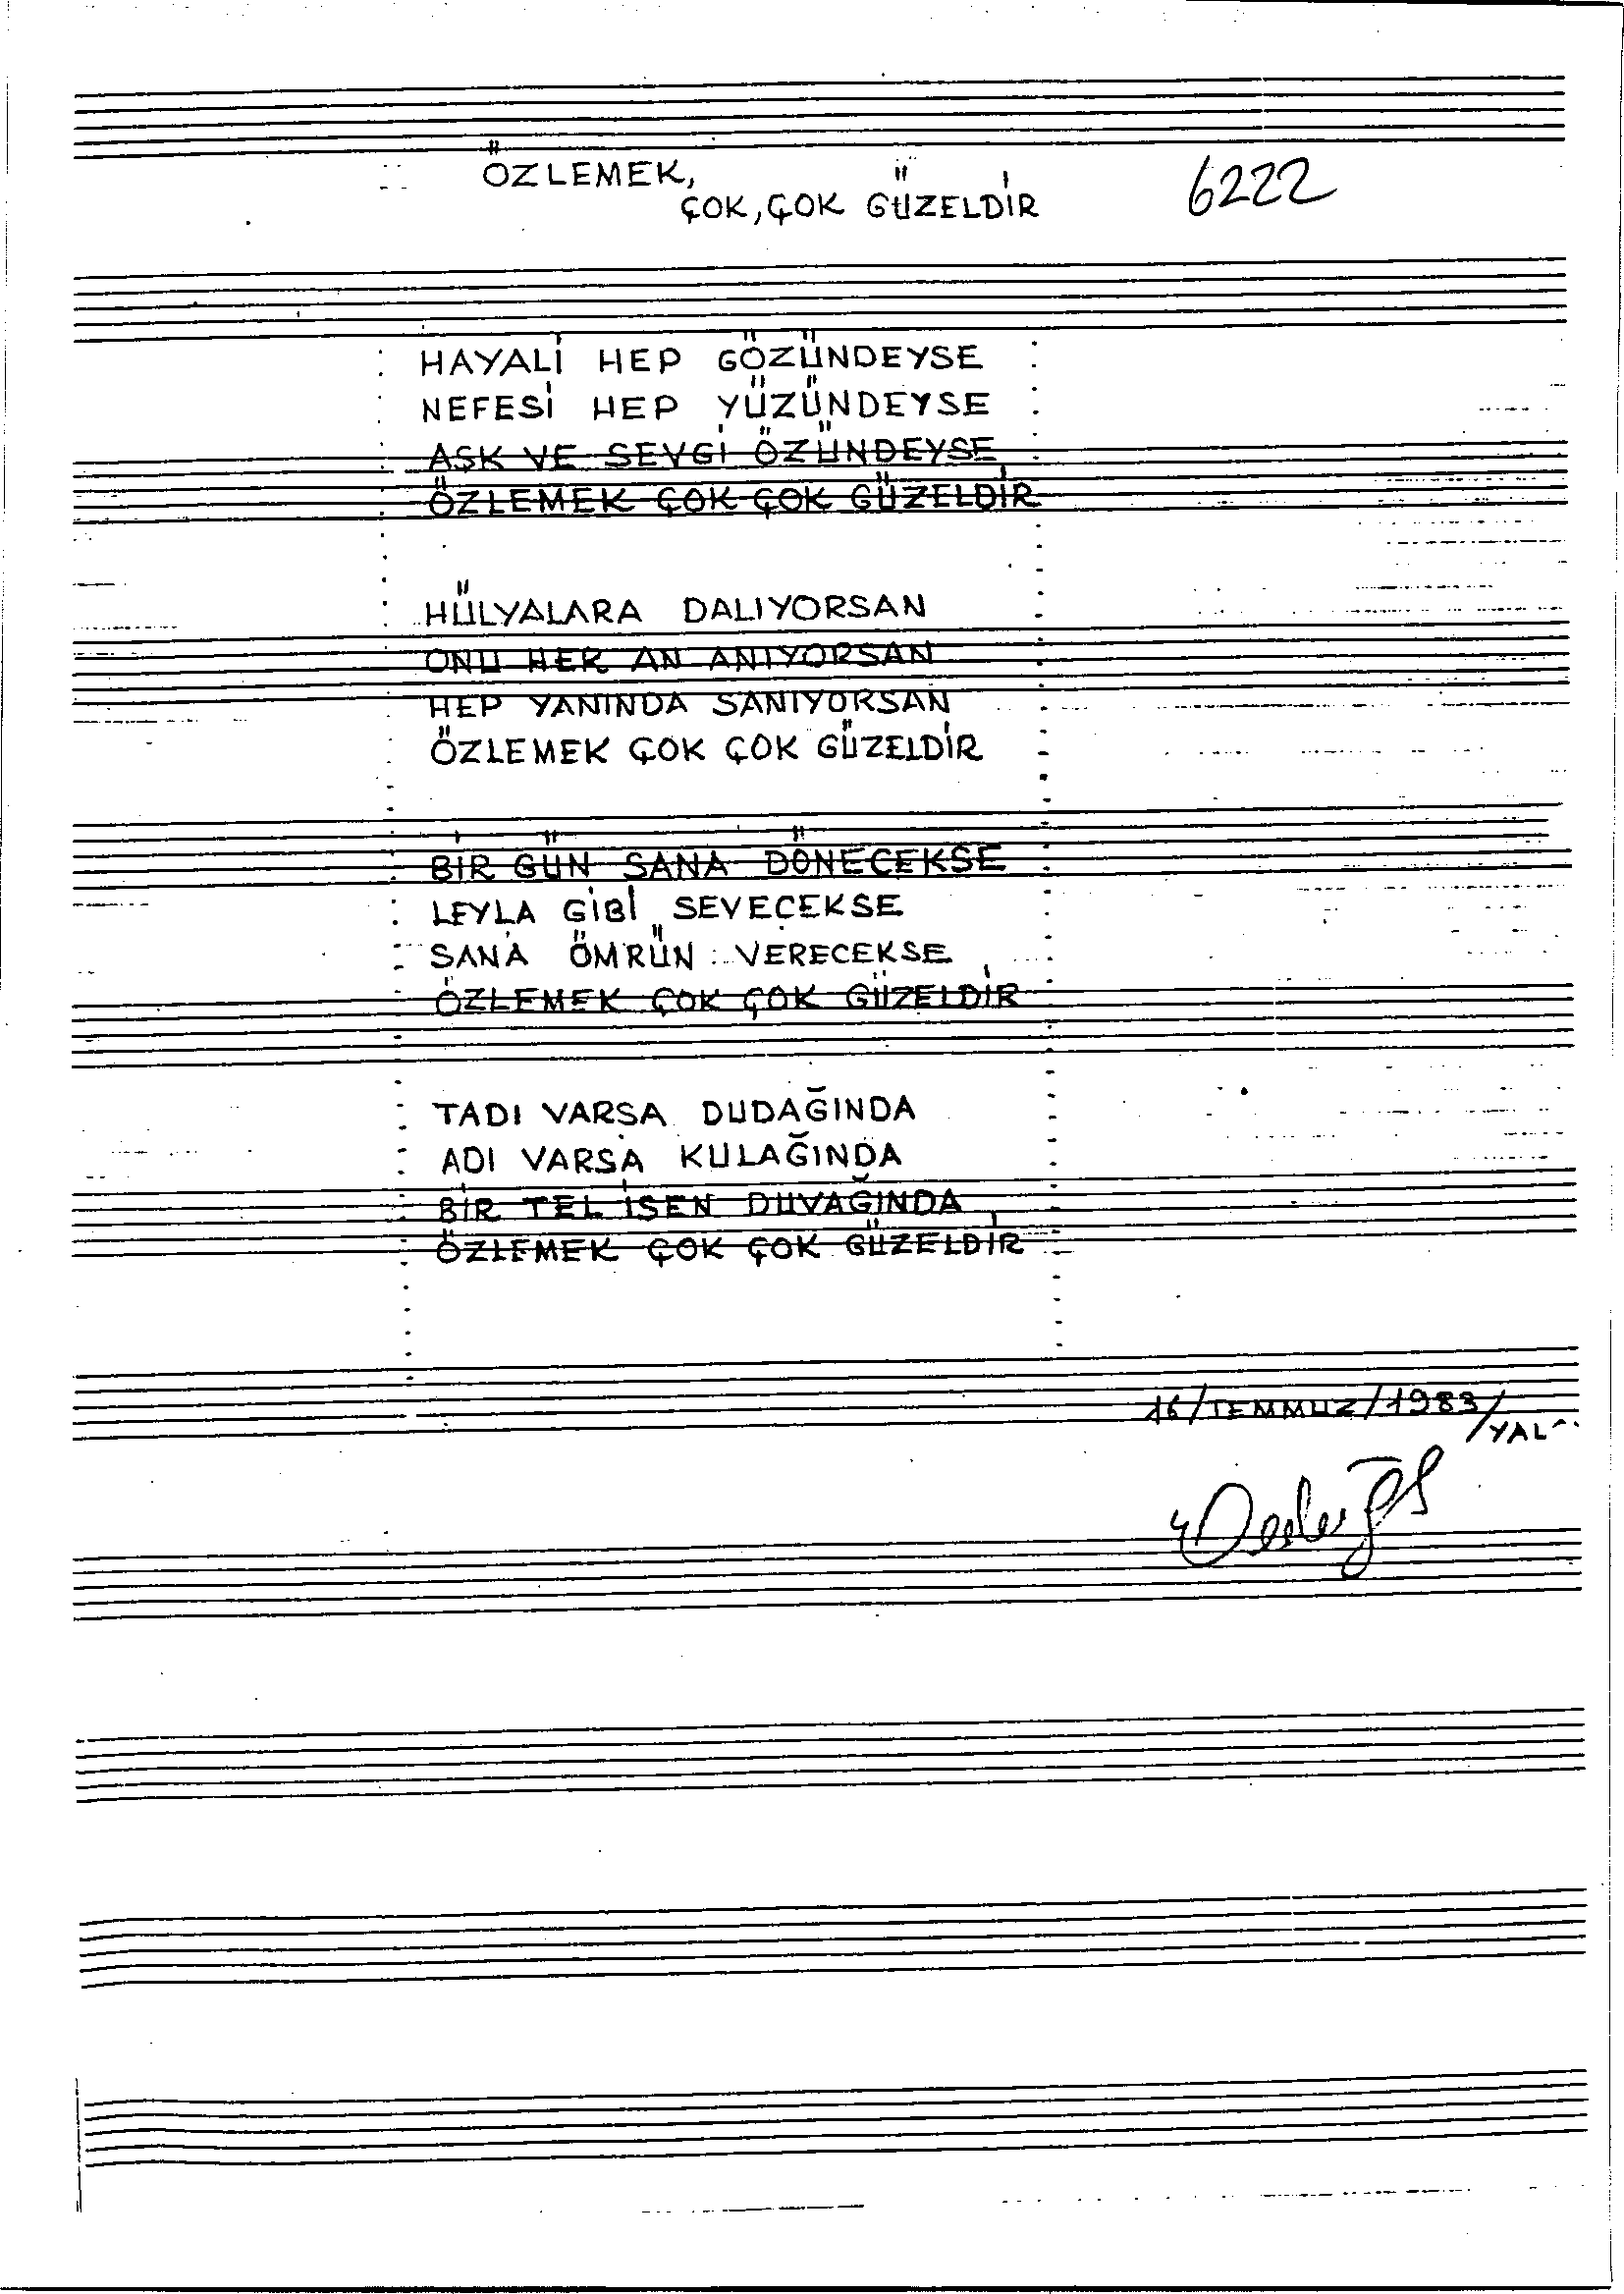 ÖZLEMEK,
ÇOK, ÇOK GÜZELDİR
6222
HAYALİ HEP GÖZÜNDEYSE
NEFESİ HEP YÜZÜNDEYSE
AŞK VE SEVGİ ÖZÜNDEYSE
ÖZLEMEK ÇOK ÇOK GÜZELDİR
HÜLYALARA DALIYORSAN
ONU HER AN ANIYORSAN
HEP YANINDA SANIYORSAN
ÖZLEMEK ÇOK ÇOK GÜZELDİR
BİR GÜN SANA DÖNECEKSE
LEYLA GİBİ SEVECEKSE
SANA ÖMRÜN VERECEKSE
ÖZLEMEK ÇOK ÇOK GÜZELDİR
TADI VARSA DUDAĞINDA
ADI VARSA KULAĞINDA
BİR TEL İSEN DUVAĞINDA
ÖZLEMEK ÇOK ÇOK GÜZELDİR
16/TEMMUZ/1983/
YAL